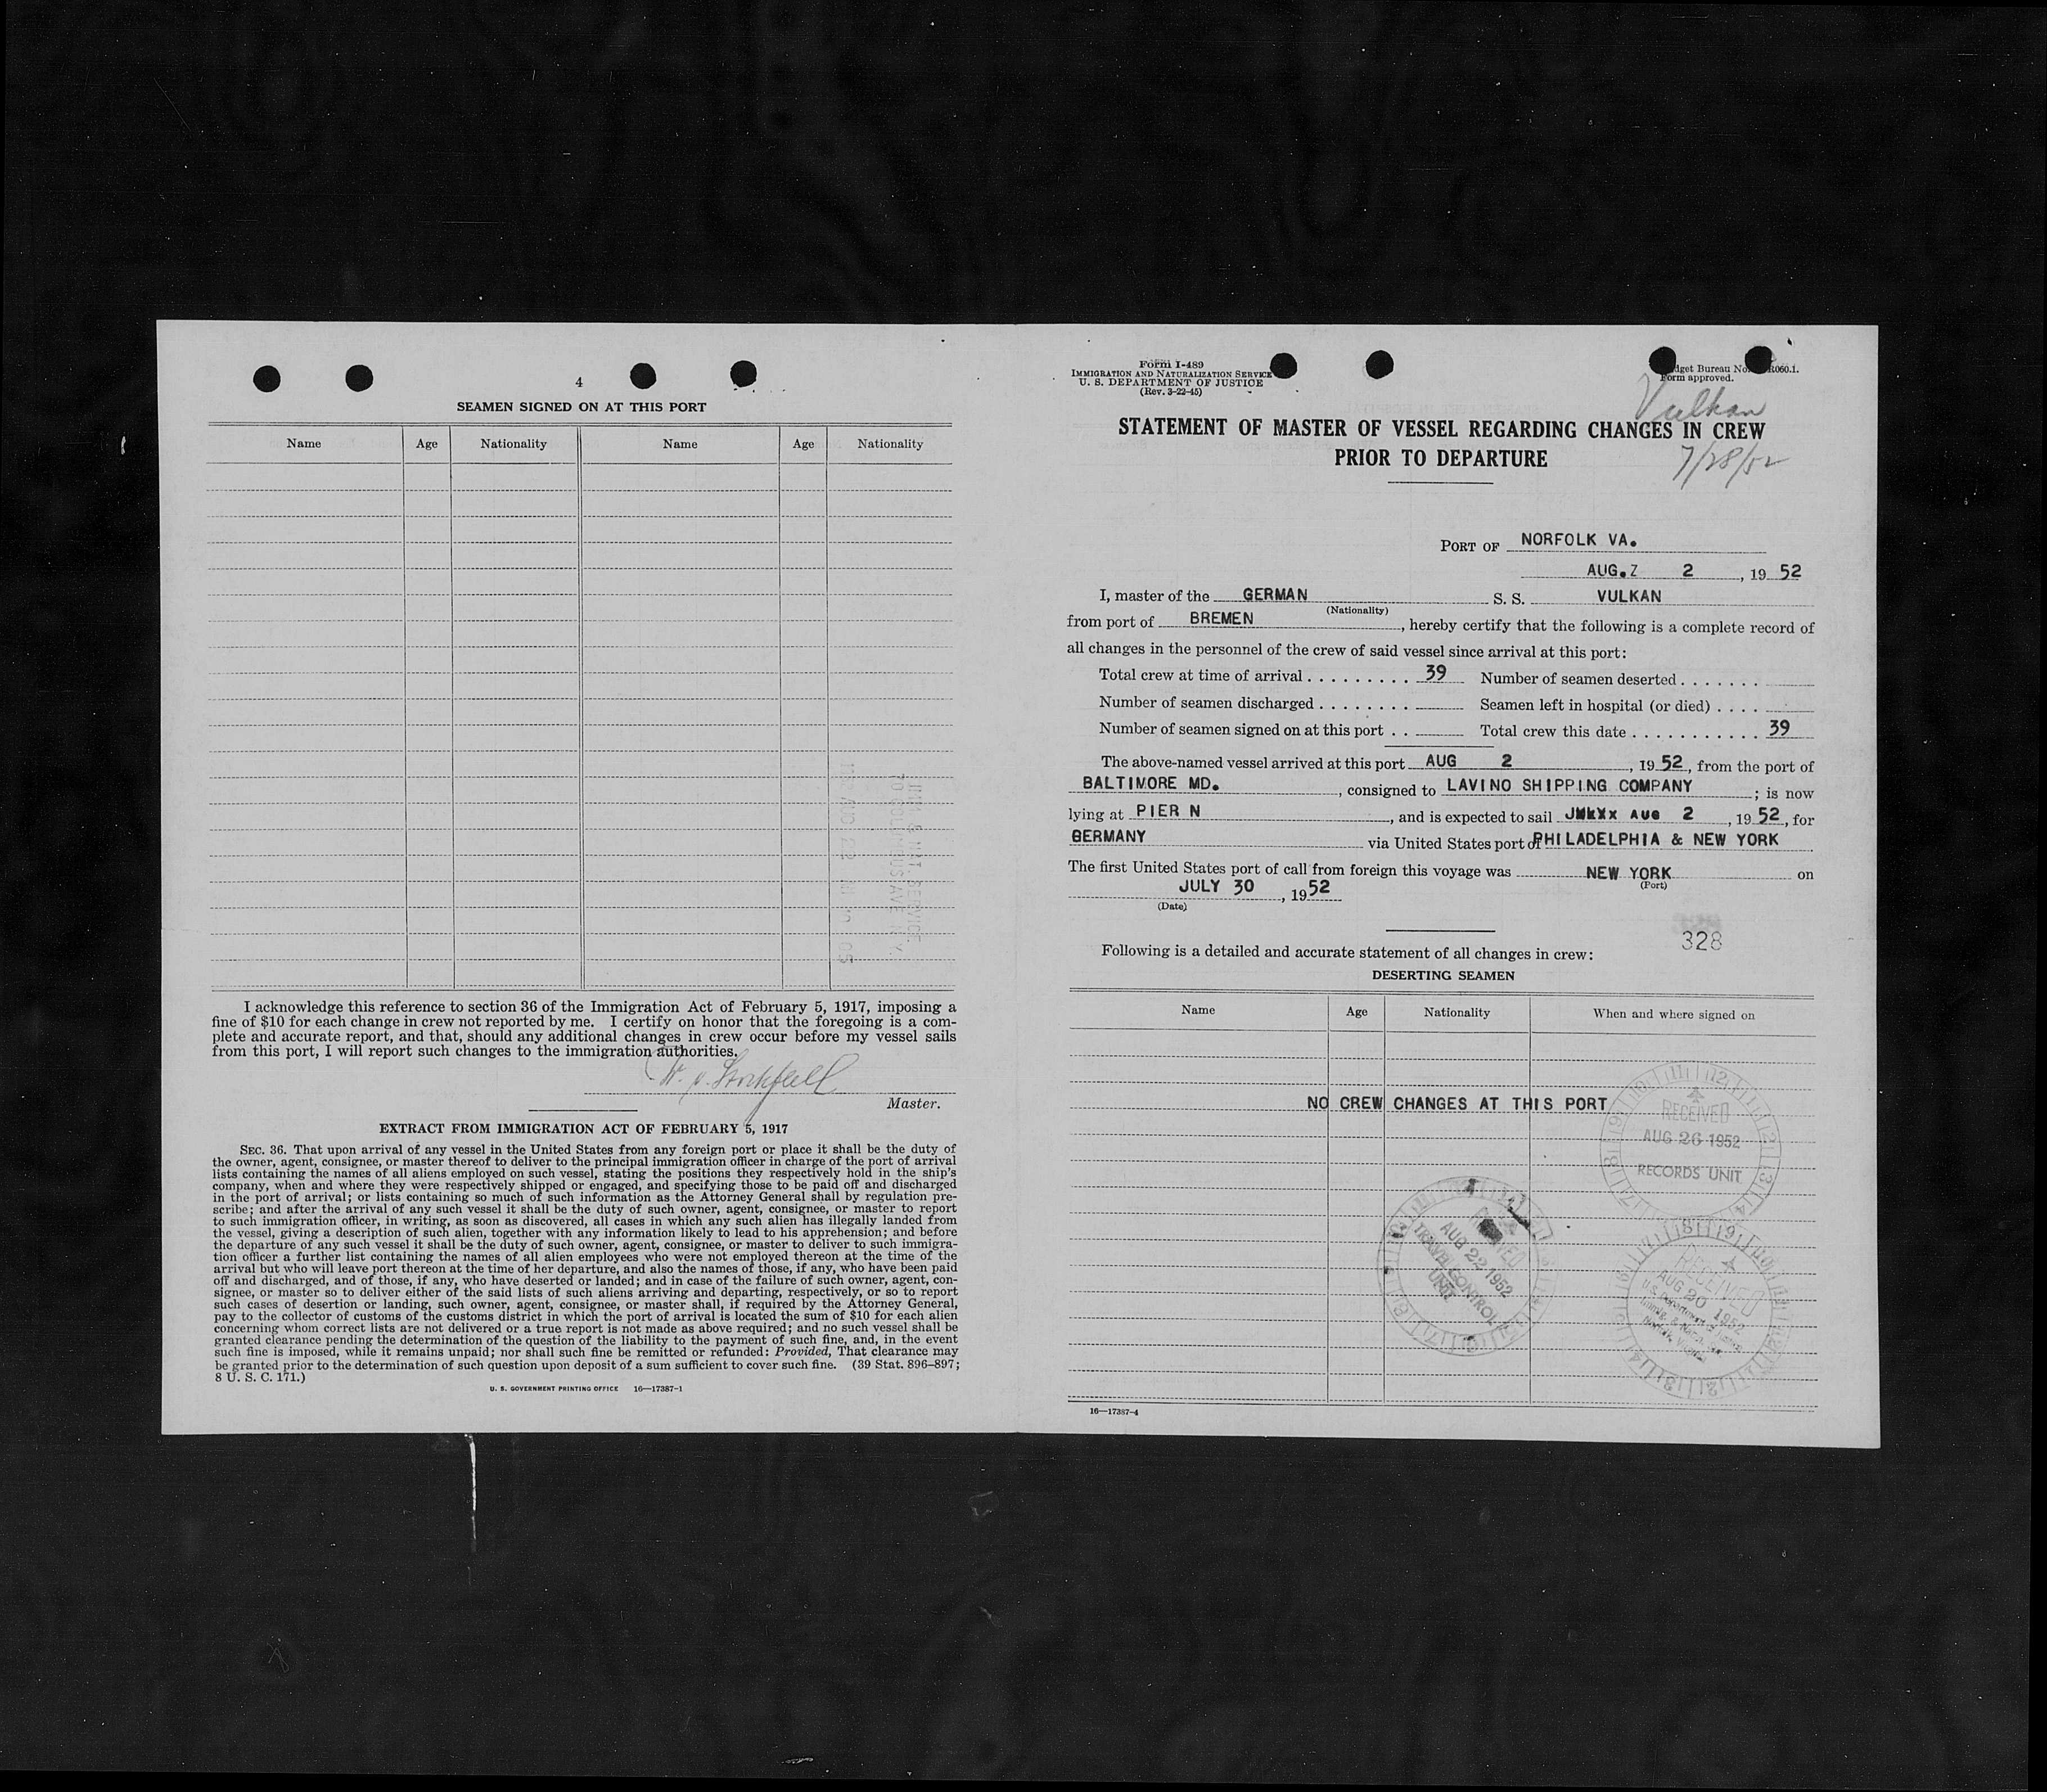 4
SEAMEN SIGNED ON AT THIS PORT
Name Age Nationality Name Age Nationality
I acknowledge this reference to section 36 of the Immigration Act of February 5, 1917, imposing a
fine of $10 for each change in crew not reported by me. I certify on honor that the foregoing is a com-
plete and accurate report, and that, should any additional changes in crew occur before my vessel sails
from this port, I will report such changes to the immigration authorities.
Master.
EXTRACT FROM IMMIGRATION ACT OF FEBRUARY 5, 1917
SEC. 36. That upon arrival of any vessel in the United States from any foreign port or place it shall be the duty of
the owner, agent, consignee, or master thereof to deliver to the principal immigration officer in charge of the port of arrival
lists containing the names of all aliens employed on such vessel, stating the positions they respectively hold in the ship's
company, when and where they were respectively shipped or engaged, and specifying those to be paid off and discharged
in the port of arrival; or lists containing so much of such information as the Attorney General shall by regulation pre-
scribe; and after the arrival of any such vessel it shall be the duty of such owner, agent, consignee, or master to report
to such immigration officer, in writing, as soon as discovered, all cases in which any such alien has illegally landed from
the vessel, giving a description of such alien, together with any information likely to lead to his apprehension; and before
the departure of any such vessel it shall be the duty of such owner, agent, consignee, or master to deliver to such immigra-
tion officer a further list containing the names of all alien employees who were not employed thereon at the time of the
arrival but who will leave port thereon at the time of her departure, and also the names of those, if any, who have been paid
off and discharged, and of those, if any, who have deserted or landed; and in case of the failure of such owner, agent, con-
signee, or master so to deliver either of the said lists of such aliens arriving and departing, respectively, or so to report
such cases of desertion or landing, such owner, agent, consignee, or master shall, if required by the Attorney General,
pay to the collector of customs of the customs district in which the port of arrival is located the sum of $10 for each alien
concerning whom correct lists are not delivered or a true report is not made as above required; and no such vessel shall be
granted clearance pending the determination of the question of the liability to the payment of such fine, and, in the event
such fine is imposed, while it remains unpaid; nor shall such fine be remitted or refunded: Provided, That clearance may
be granted prior to the determination of such question upon deposit of a sum sufficient to cover such fine. (39 Stat. 896–897;
8 U. S. C. 171.)
U. S. GOVERNMENT PRINTING OFFICE 16—17387-1
Form I-489
IMMIGRATION AND NATURALIZATION SERVICE
U. S. DEPARTMENT OF JUSTICE
(Rev. 3-22-45)
Bureau No.
Form approved.
Vulkan
STATEMENT OF MASTER OF VESSEL REGARDING CHANGES IN CREW
PRIOR TO DEPARTURE
7/28/52
PORT OF NORFOLK VA.
AUG. 2, 19 52
I, master of the GERMAN S. S. VULKAN
(Nationality)
from port of BREMEN, hereby certify that the following is a complete record of
all changes in the personnel of the crew of said vessel since arrival at this port:
Total crew at time of arrival . . . . . . . . . 39 Number of seamen deserted . . . . . . .
Number of seamen discharged . . . . . . . . Seamen left in hospital (or died) . . . .
Number of seamen signed on at this port . . Total crew this date . . . . . . . . . . . 39
The above-named vessel arrived at this port AUG 2, 19 52, from the port of
BALTIMORE MD., consigned to LAVINO SHIPPING COMPANY; is now
lying at PIER N, and is expected to sail AUG 2, 19 52, for
GERMANY via United States port of PHILADELPHIA & NEW YORK
The first United States port of call from foreign this voyage was NEW YORK on
(Port)
JULY 30, 19 52
(Date)
328
Following is a detailed and accurate statement of all changes in crew:
DESERTING SEAMEN
Name Age Nationality When and where signed on
NO CREW CHANGES AT THIS PORT
RECEIVED
AUG 26 1952
RECORDS UNIT
AUG 22 1952
TRAVEL CONTROL
UNIT
RECEIVED
AUG 20 1952
16—17387-4